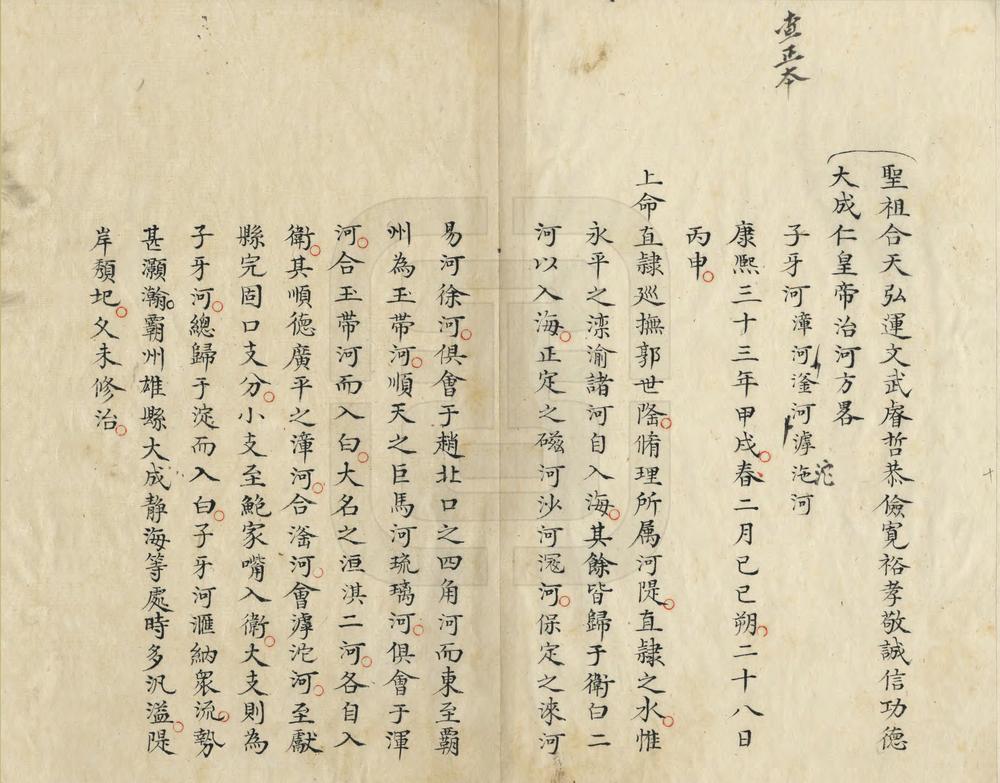 查正本
聖祖合天弘運文武睿哲恭儉寬裕孝敬誠信功德
大成仁皇帝治河方畧
子牙河漳河滏河滹沱河
沱
康熙三十三年甲戌。春二月已已朔。二十八日
丙申。
上命直隷廵撫郭世隆。脩理所属河隄。直隷之水。惟
永平之滦渝諸河自入海。其餘皆歸于衛白二
河以入海。正定之磁河沙河滱河。保定之淶河
易河徐河。俱會于趙北口之四角河而東至霸
州為玉帶河。順天之巨馬河琉璃河。俱會于渾
河。合玉帶河而入白。大名之洹淇二河。各自入
衛。其順德廣平之漳河。合滏河。會滹沱河。至獻
縣完固口支分。小支至鮑家嘴入衛。大支則為
子牙河。總歸于淀而入白。子牙河滙納眾流。勢
甚灝瀚。霸州雄縣大成静海等處時多汎溢。隄
岸頽圮。久未修治。